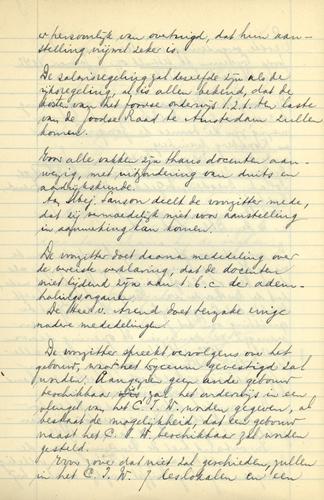 er persoonlijk van overtuigd, dat hun aan-
stelling vrijwel zeker is.
De salarisregeling zal dezelfde zijn als de
rijksregeling, is allen bekend, dat de
kosten van het Joodse onderwijs t.z.t. ten laste
van de Joodse Raad te Amsterdam zullen
komen.
Voor alle vakken zijn thans docenten aan-
wezig, met uitzondering van duits en
aardrijkskunde.
Aan Mej. Sanson deelt de voorzitter mede,
dat zij vermoedelijk niet voor aanstelling
in aanmerking kan komen.
De voorzitter doet daarna mededeling over
de vereiste verklaring, dat de docenten
niet lijdend zijn aan t.b.c. de adem-
halingsorganen.
De Heer v. Arend doet terzake enige
nadere mededelingen.
De voorzitter spreekt vervolgens over het
gebouw, waar het lyceum gevestigd zal
worden. Aangezien geen ander gebouw
beschikbaar is, zal het onderwijs in een
vleugel van het C.I.W. worden gegeven, al
bestaat de mogelijkheid, dat een gebouw
naast het C.I.W. beschikbaar zal worden
gesteld.
Voor zover dat niet zal geschieden, zullen
in het C.I.W. 7 leslokalen en een